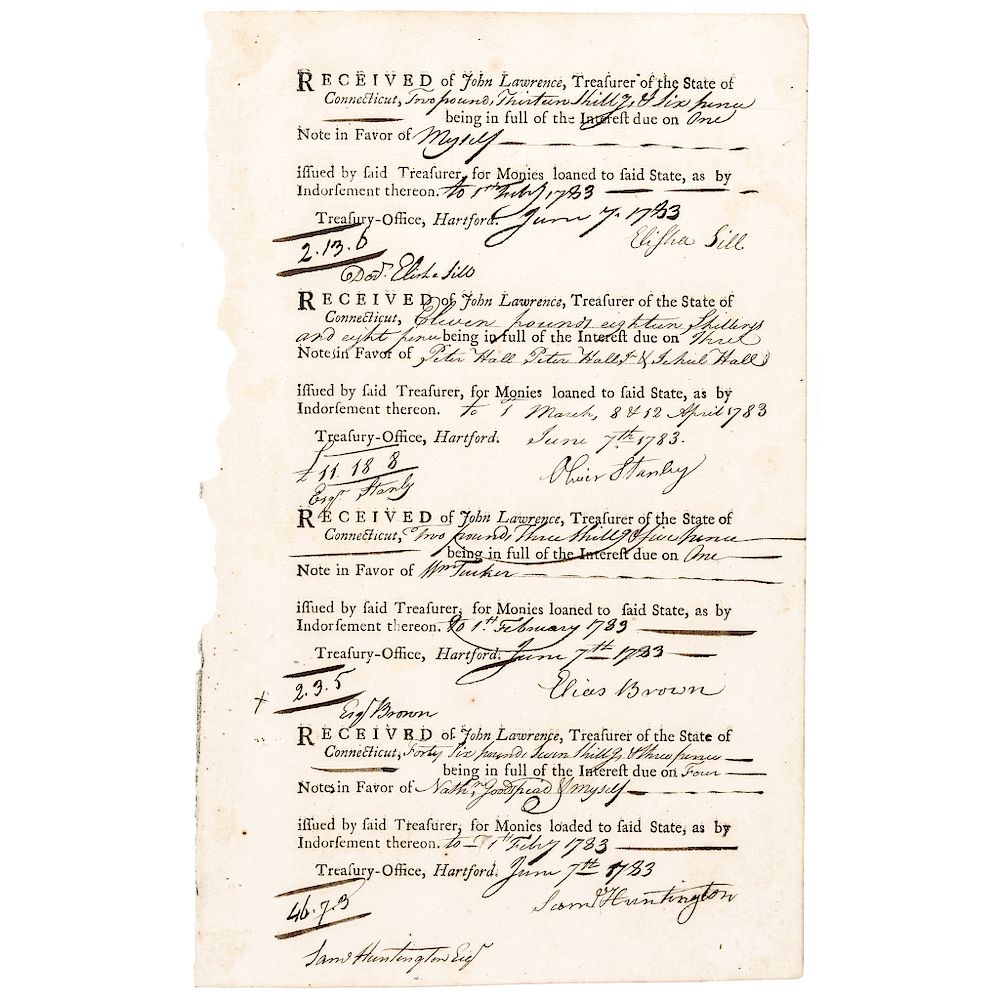 RECEIVED of John Lawrence, Treaſurer of the State of
Connecticut, Two pounds Thirteen Shillgs & Six pence
being in full of the Intereſt due on One
Note in Favor of Myself
iſſued by ſaid Treaſurer, for Monies loaned to ſaid State, as by
Indorſement thereon. to 1st Feby 1783
Treaſury-Office, Hartford. June 7. 1783
2.13.6
Elisha Sill
Elisha Sill
RECEIVED of John Lawrence, Treaſurer of the State of
Connecticut, Eleven pounds eighteen Shillings
and eight pence being in full of the Intereſt due on Three
Notes in Favor of Peter Hall Peter Hall Jr & Jehiel Hall
iſſued by ſaid Treaſurer, for Monies loaned to ſaid State, as by
Indorſement thereon. to 1t March, 8 & 12 April 1783
Treaſury-Office, Hartford. June 7th 1783.
£ 11. 18 8
Oliver Stanley
Esqr Stanly
RECEIVED of John Lawrence, Treaſurer of the State of
Connecticut, Two pounds Three Shillgs & five pence
being in full of the Intereſt due on One
Note in Favor of Wm Tucker
iſſued by ſaid Treaſurer, for Monies loaned to ſaid State, as by
Indorſement thereon. to 1st February 1783
Treaſury-Office, Hartford. June 7th 1783
2.3.5
Elias Brown
Esqr Brown
RECEIVED of John Lawrence, Treaſurer of the State of
Connecticut, Forty Six pounds Seven Shillgs & three pence
being in full of the Intereſt due on Four
Notes in Favor of Nathn Goodspead & myself
iſſued by ſaid Treaſurer, for Monies loaded to ſaid State, as by
Indorſement thereon. to 1st Feby 1783
Treaſury-Office, Hartford. June 7th 1783
46.7.3
Saml Huntington
Saml Huntington Esqr